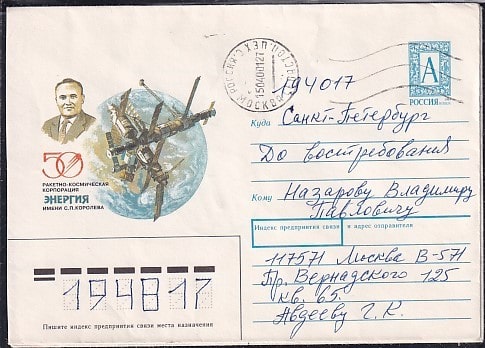 РОССИЯ МОСКВА
1504001217
А
РОССИЯ
194017
Куда Санкт-Петербург
До востребования
Кому Назарову Владимиру
Павловичу
Индекс предприятия связи и адрес отправителя
117571 Москва В-571
Пр. Вернадского 125
кв. 65.
Авдееву Г. К.
50
РАКЕТНО-КОСМИЧЕСКАЯ
КОРПОРАЦИЯ
ЭНЕРГИЯ
ИМЕНИ С.П.КОРОЛЕВА
194817
Пишите индекс предприятия связи места назначения